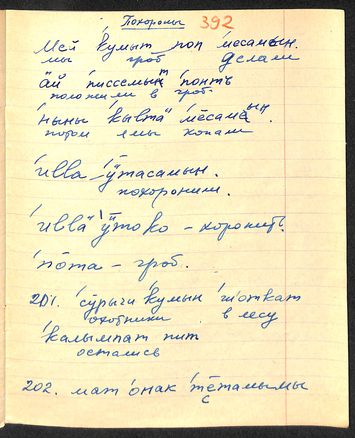 Похороны 392
Мей ӄумыт поп месамын.
мы гроб делали
ӓй писсемынт понтъ
положили в гроб
ныны кывта месаме
потом ямы копали
илла ӱтасамын.
похоронили.
илла ӱтоко – хоронить.
пота – гроб.
201. сурычи ӄумын щоткат
охотники в лесу
калымпат пит
остались
202. мат онак тӗтамымы